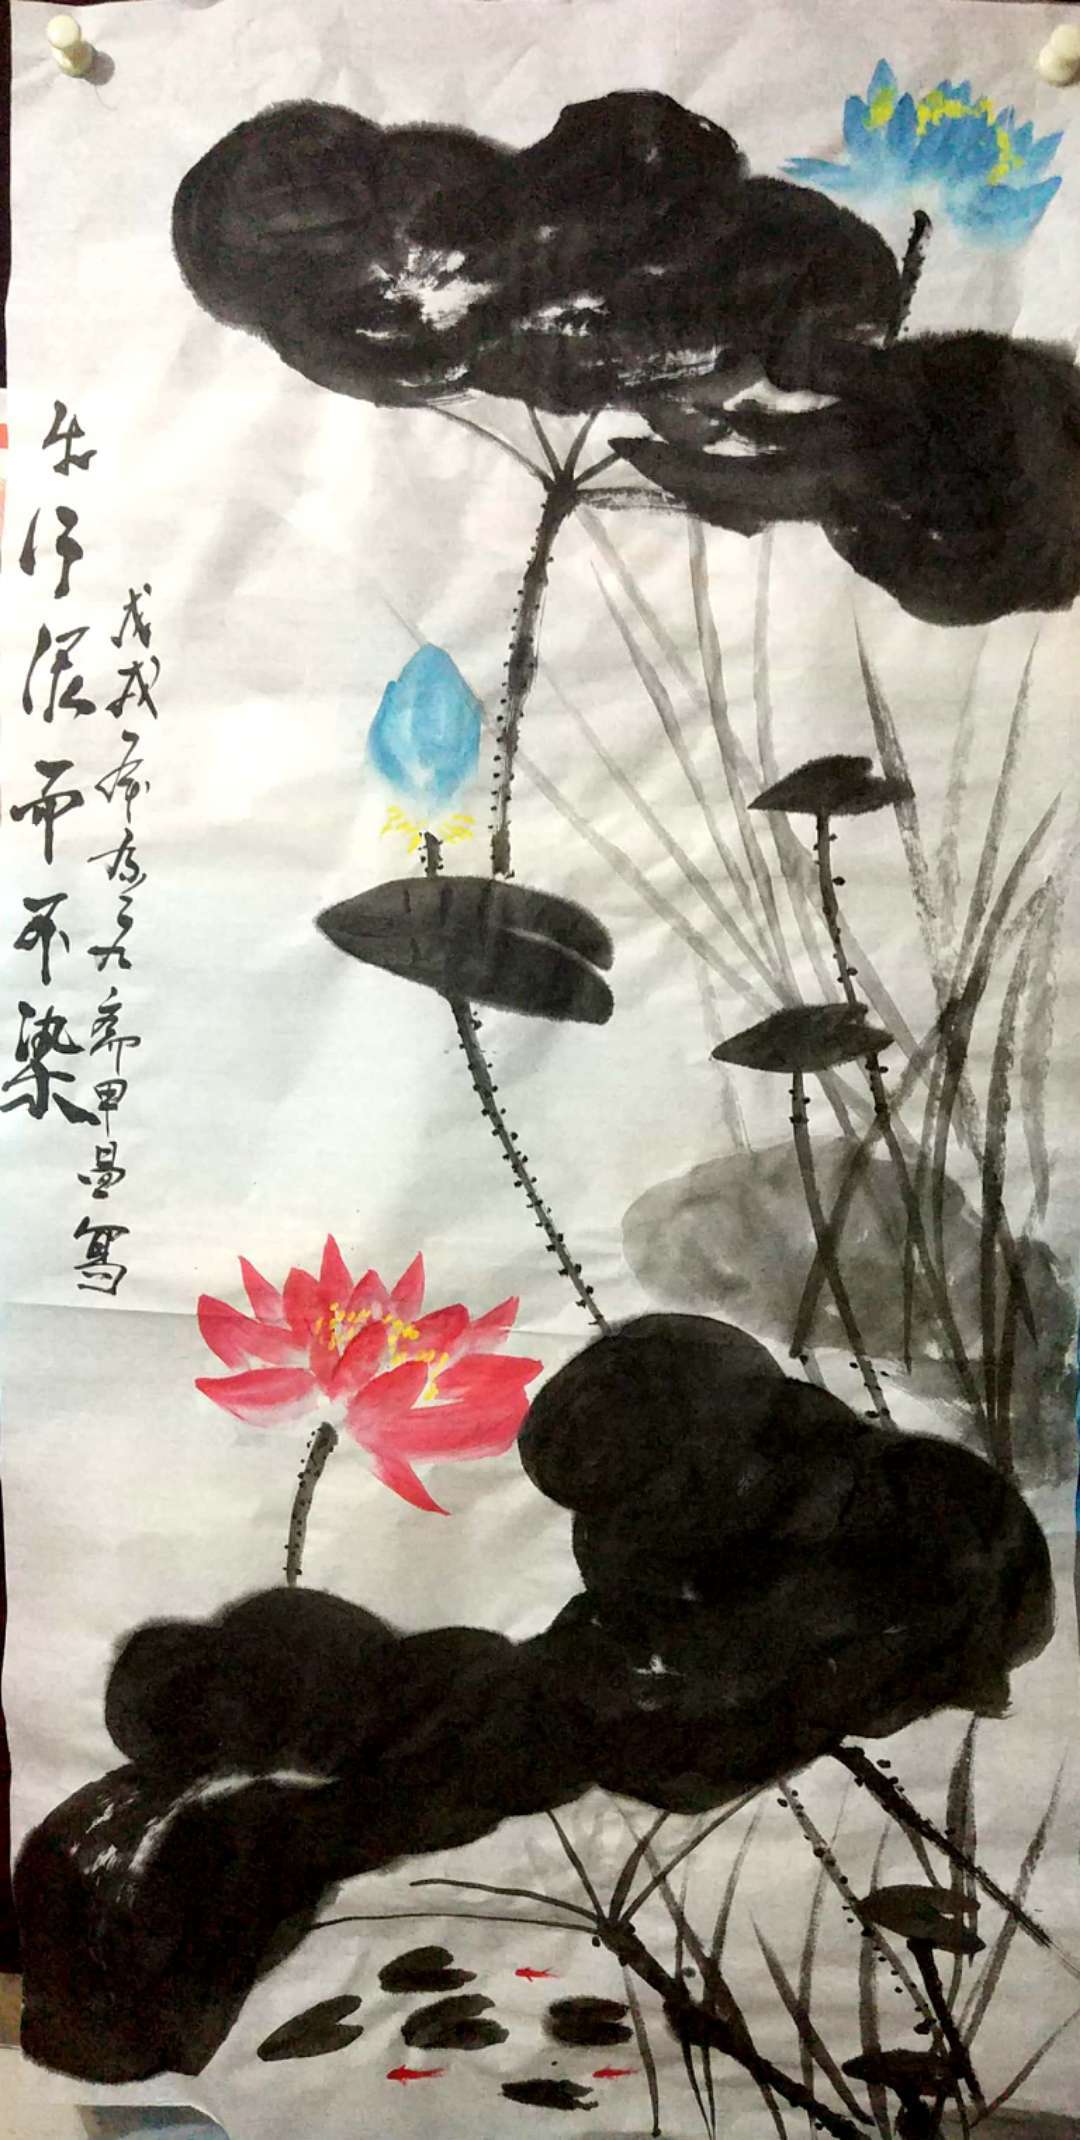 出污泥而不染
戊戌年春三九斋甲昌写